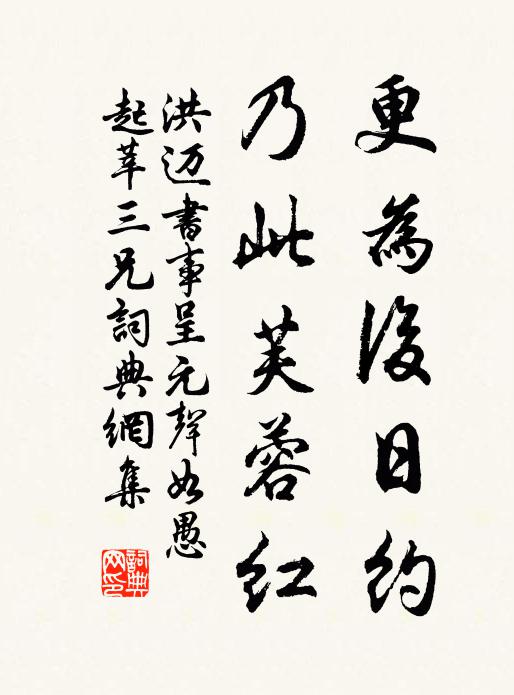 更為後日約
乃此芙蓉紅
洪迈書事呈元聲如愚
起莘三兄詞典網集
詞典
网印